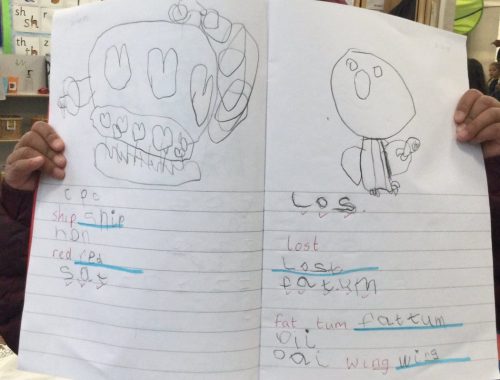 sh
sh
r
th
th
cpc
ship ship
non
red red
sat
Los.
lost
Lost
fat.um
fat tum fattum
oil
oai wing wing